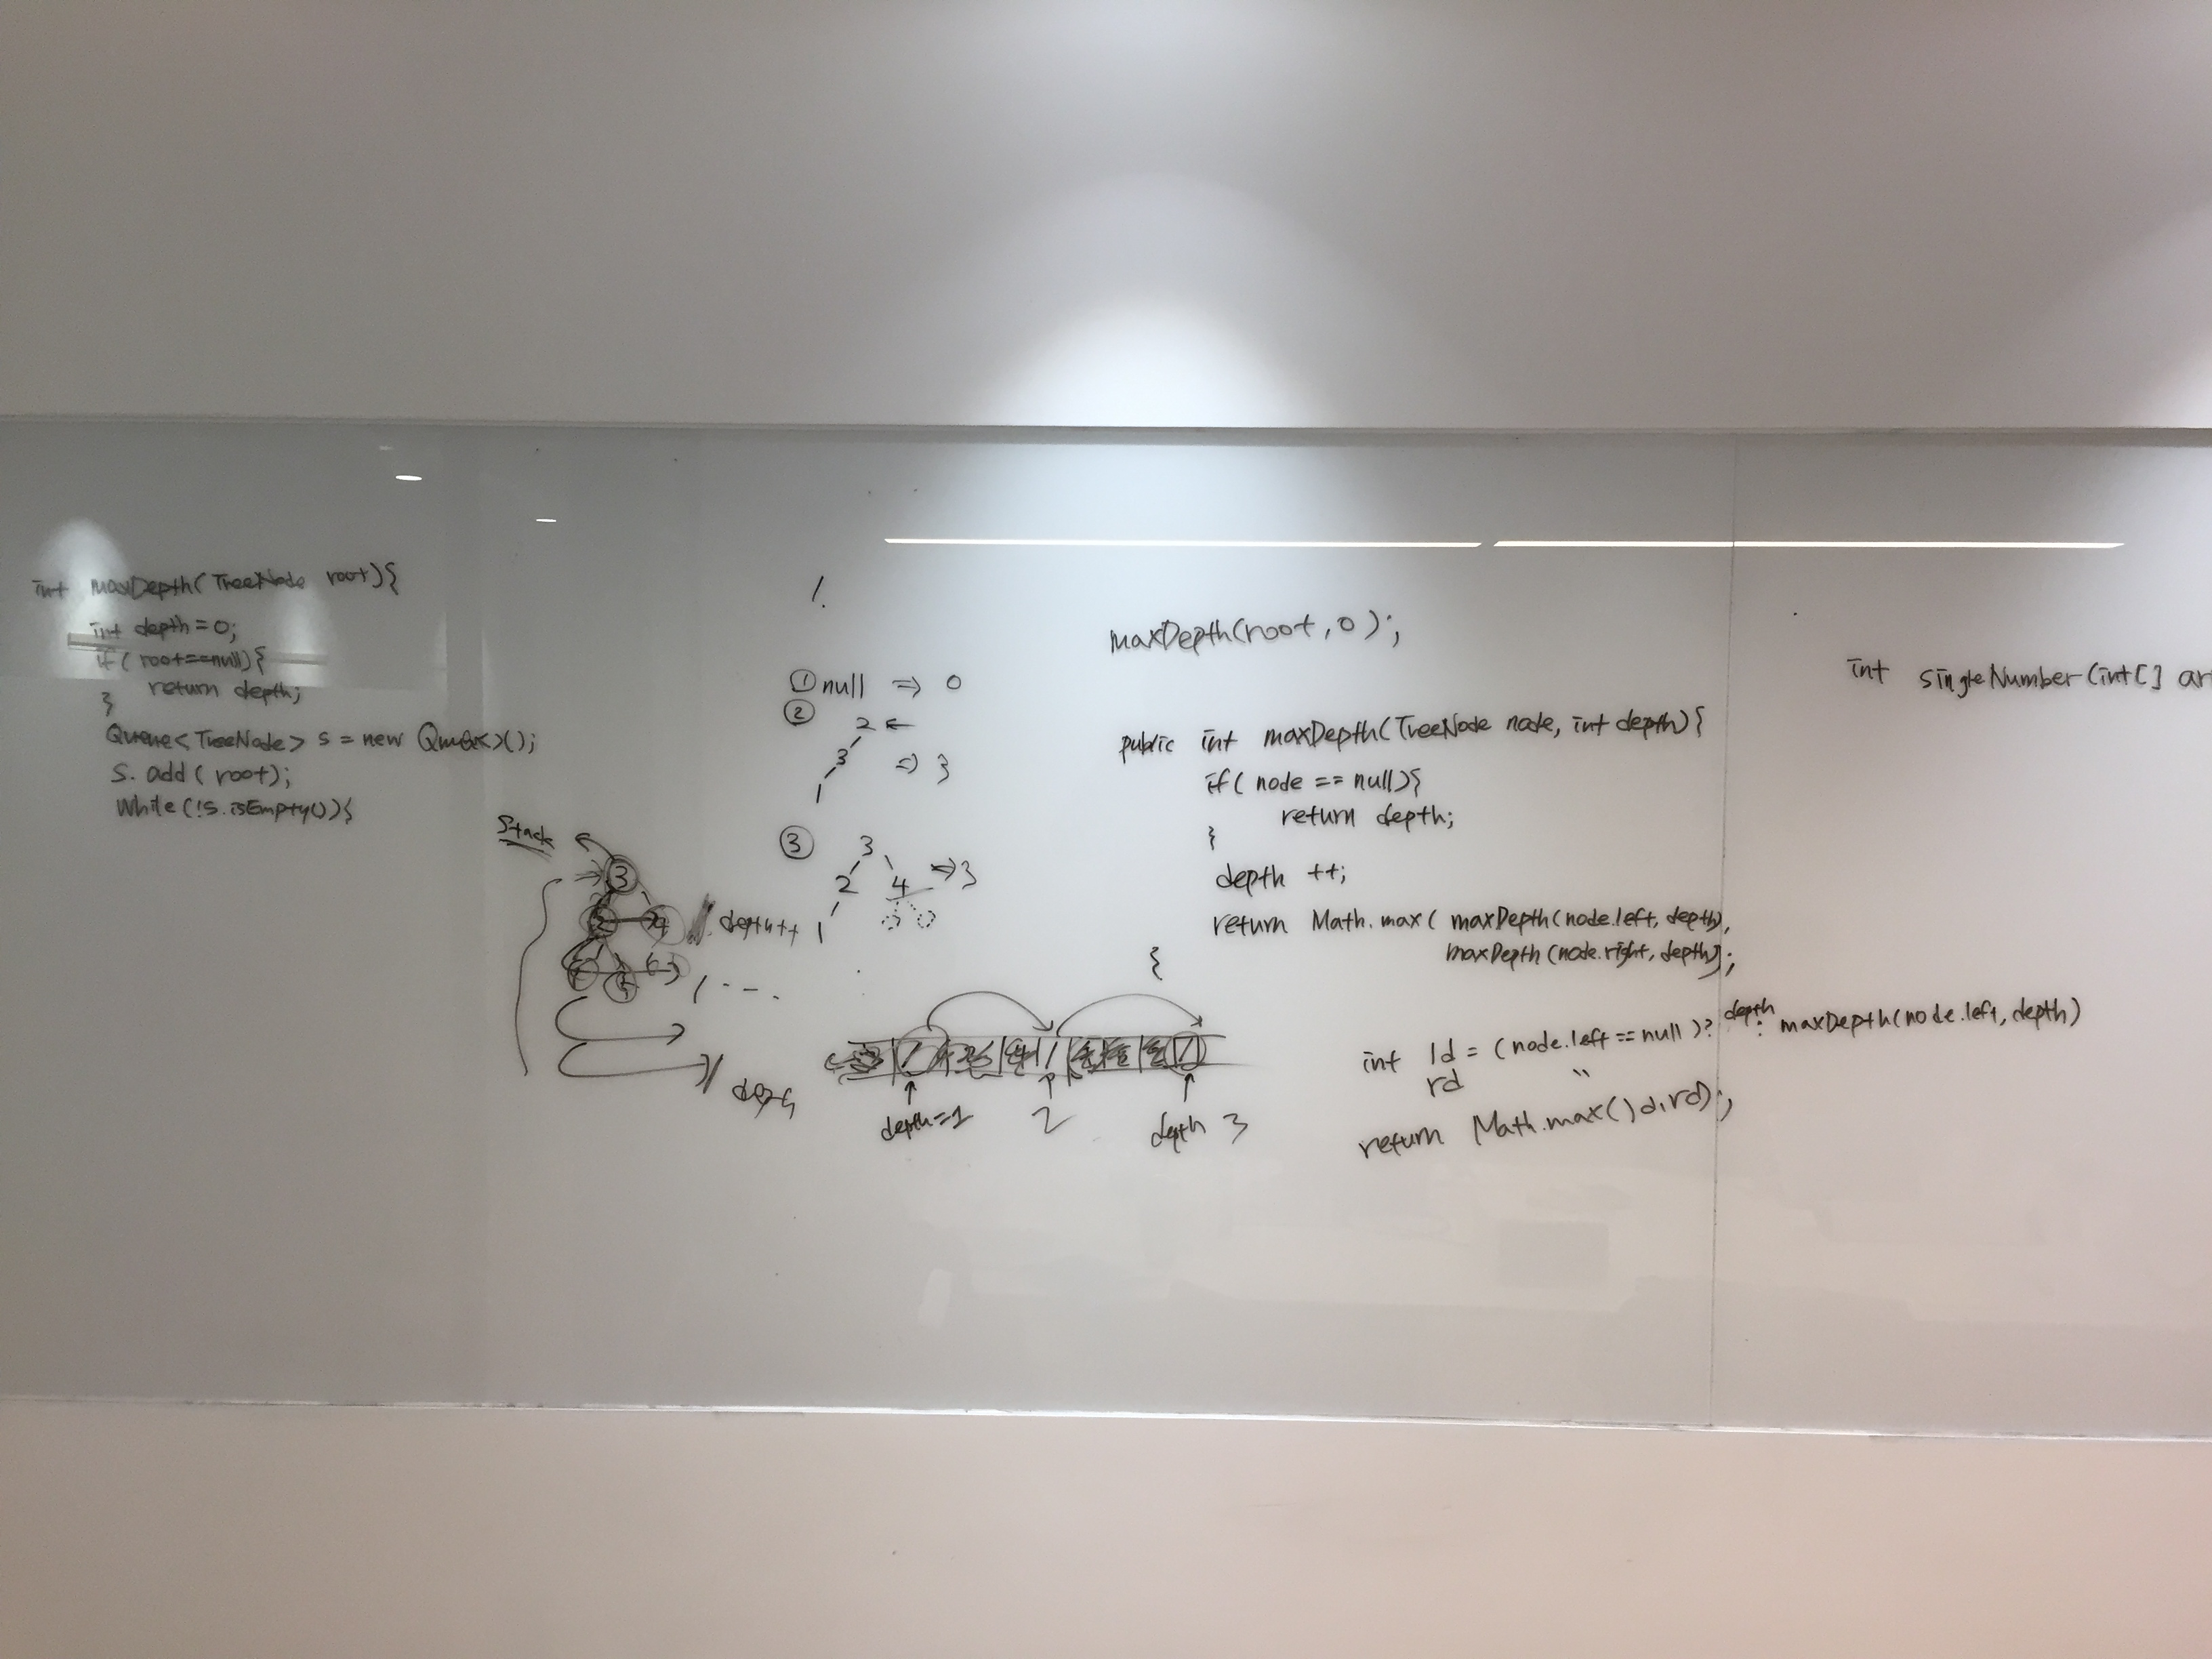 int maxDepth(TreeNode root){
int depth=0;
if(root==null){
return depth;
}
Queue<TreeNode> s = new
s.add(root);
While(!s.isEmpty()){
Stack
3
2 4
depth++
/ - - -
/.
① null => 0
②
2 ←
3 => 3
1
③
3
2 4 => 3
1
depth=1
2
depth 3
maxDepth(root,0);
public int maxDepth(TreeNode node, int depth){
if( node == null){
return depth;
}
depth ++;
return Math.max( maxDepth(node.left, depth),
maxDepth(node.right, depth);
}
int ld = (node.left == null)? depth : maxDepth(node.left, depth)
rd "
return Math.max()d,rd);
int singleNumber(int[] ar